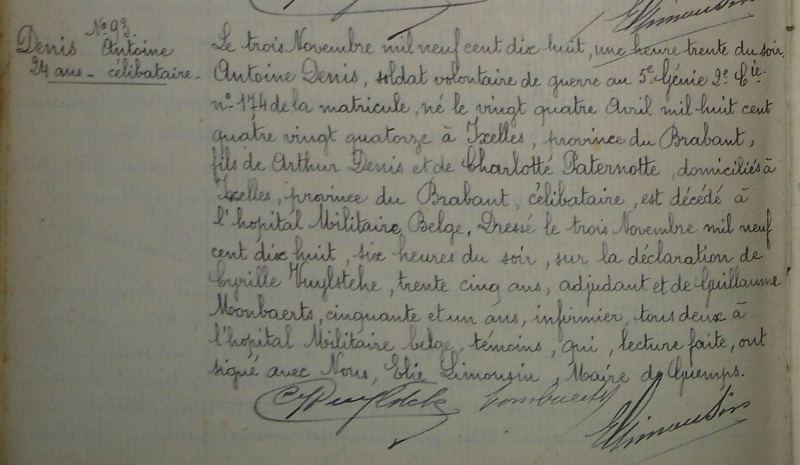 N° 93.
Denis Antoine
24 ans - célibataire -
Le trois Novembre mil neuf cent dix huit, une heure trente du soir,
Antoine Denis, soldat volontaire de guerre au 5e Génie 2e Cie.
n° 174 de la matricule, né le vingt quatre Avril mil huit cent
quatre vingt quatorze à Ixelles, province du Brabant,
fils de Arthur Denis et de Charlotte Paternotte, domiciliés à
Ixelles, province du Brabant, célibataire, est décédé à
l'hopital Militaire Belge, Dressé le trois Novembre mil neuf
cent dix huit, six heures du soir, sur la déclaration de
Cyrille Wuylsteke, trente cinq ans, adjudant et de Guillaume
Moonbaerts, cinquante et un ans, infirmier, tous deux à
l'hopital Militaire belge, témoins, qui, lecture faite, ont
signé avec Nous, Elie Limousin, Maire de Guemps.
ELimousin